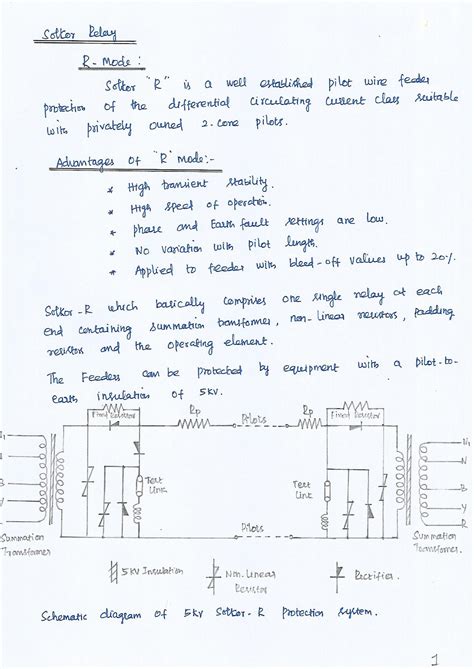 Solkor Relay
R-Mode:
Solkor "R" is a well established pilot wire feeder
protection of the differential circulating current class suitable
with privately owned 2-core pilots.
Advantages of "R" mode:-
* High transient stability.
* High speed of operation.
* phase and Earth fault settings are low.
* No variation with pilot length.
* Applied to feeder with bleed-off values up to 20%.
Solkor-R which basically comprises one single relay at each
end containing summation transformer, non-linear resistors, padding
resistor and the operating element.
The Feeders can be protected by equipment with a pilot-to-
earth insulation of 5kV.
Fixed Resistor
Rp
Pilots
Rp
Fixed Resistor
N
B
Y
Test
Link
Test
Link
N
B
Y
R
Pilots
Summation
Transformer
Summation
Transformer.
5kV Insulation
Non-Linear
Resistor
Rectifier.
Schematic diagram of 5kV Solkor-R Protection system.
1